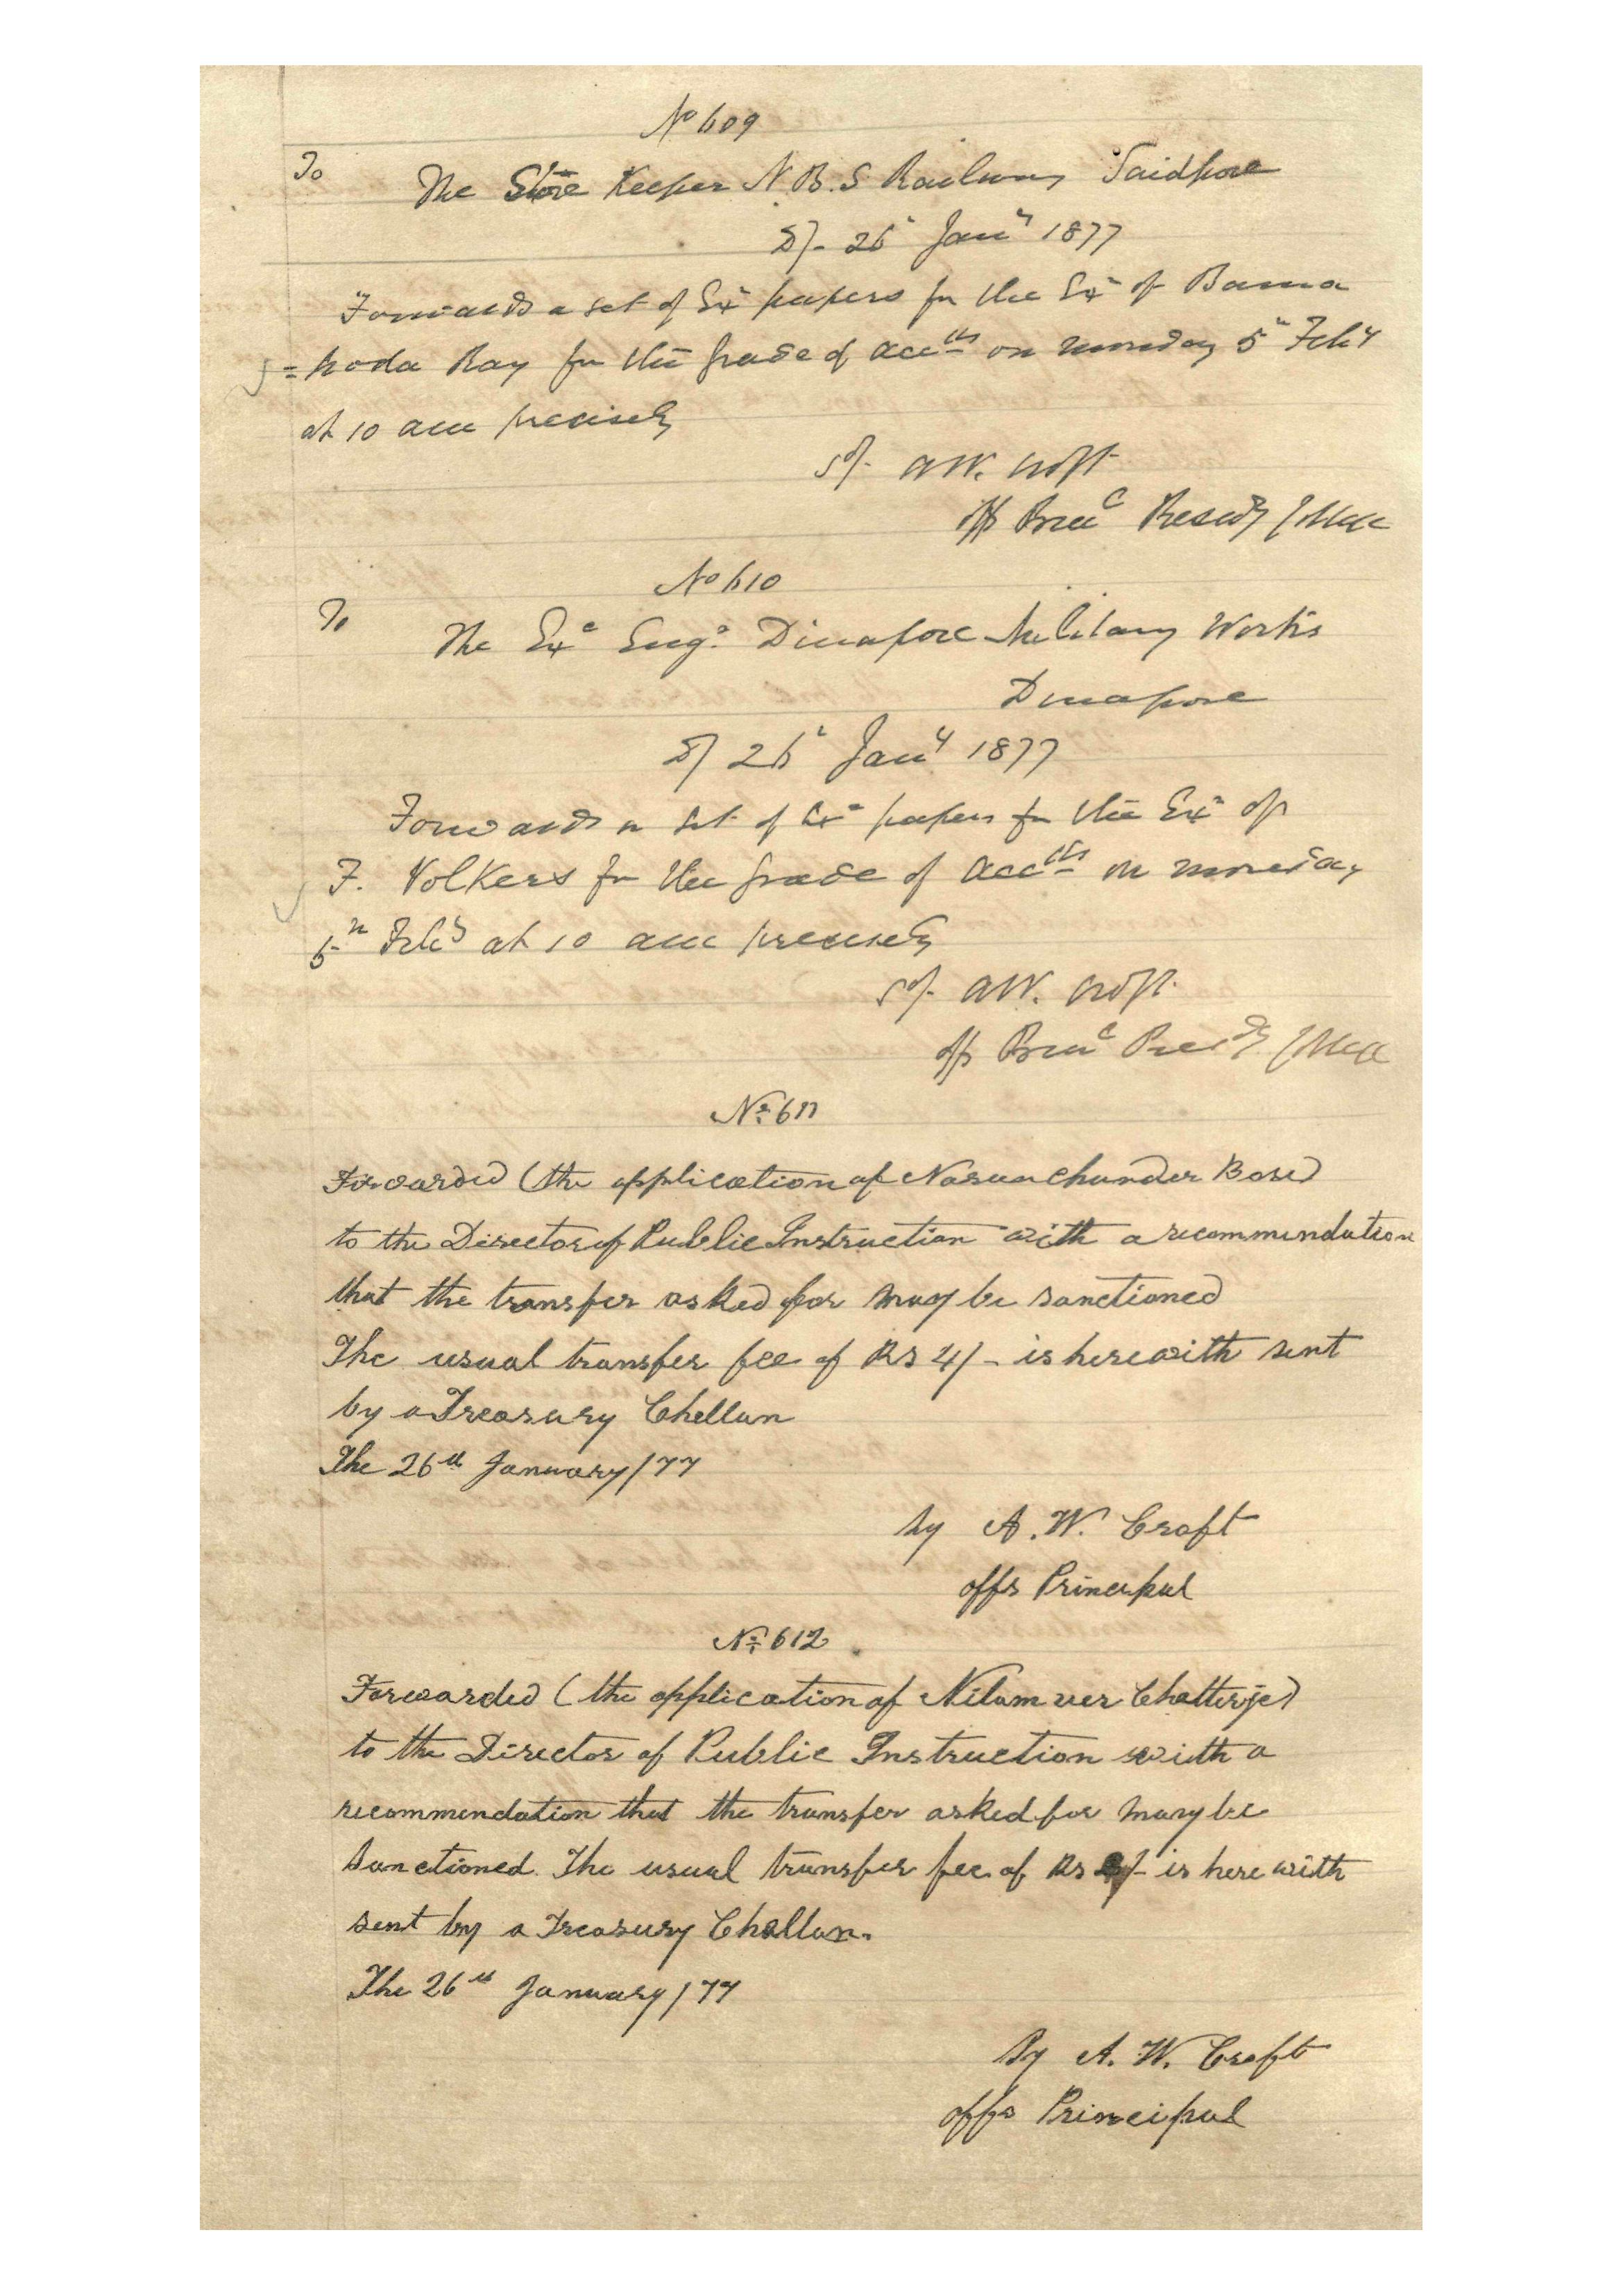 No 609
To
The Store Keeper N. B. S Railway Saidpore
D/- 26 Jany 1877
Forwards a set of Exn papers for the Exn of Bama
=poda Ray for the grade of Accts on monday 5th Feby
at 10 am precisely
Sd/- AW. Croft
Off Princ Presidy College
No 610
To
The Exe Engr Dinapore Military Works
Dinapore
D/ 26 Jany 1877
Forwards a set of Exn papers for the Exn of
F. Volkers for the grade of Accts on monday
5th Feby at 10 am precisely
Sd/- AW. Croft
Off Princ Presidy College
No. 611
Forwarded (the application of Chunder Bose)
to the Director of Public Instruction with a recommendation
that the transfer asked for may be sanctioned
The usual transfer fee of Rs 4/- is herewith sent
by a Treasury Chellan
The 26th January/77
A. W. Croft
offg Principal
No. 612
Forwarded (the application of Nilamver Chatterje)
to the Director of Public Instruction with a
recommendation that the transfer asked for may be
Sanctioned. The usual transfer fee of Rs /- is here with
sent by a Treasury Challan.
The 26th January/77
A. W. Croft
offg Principal